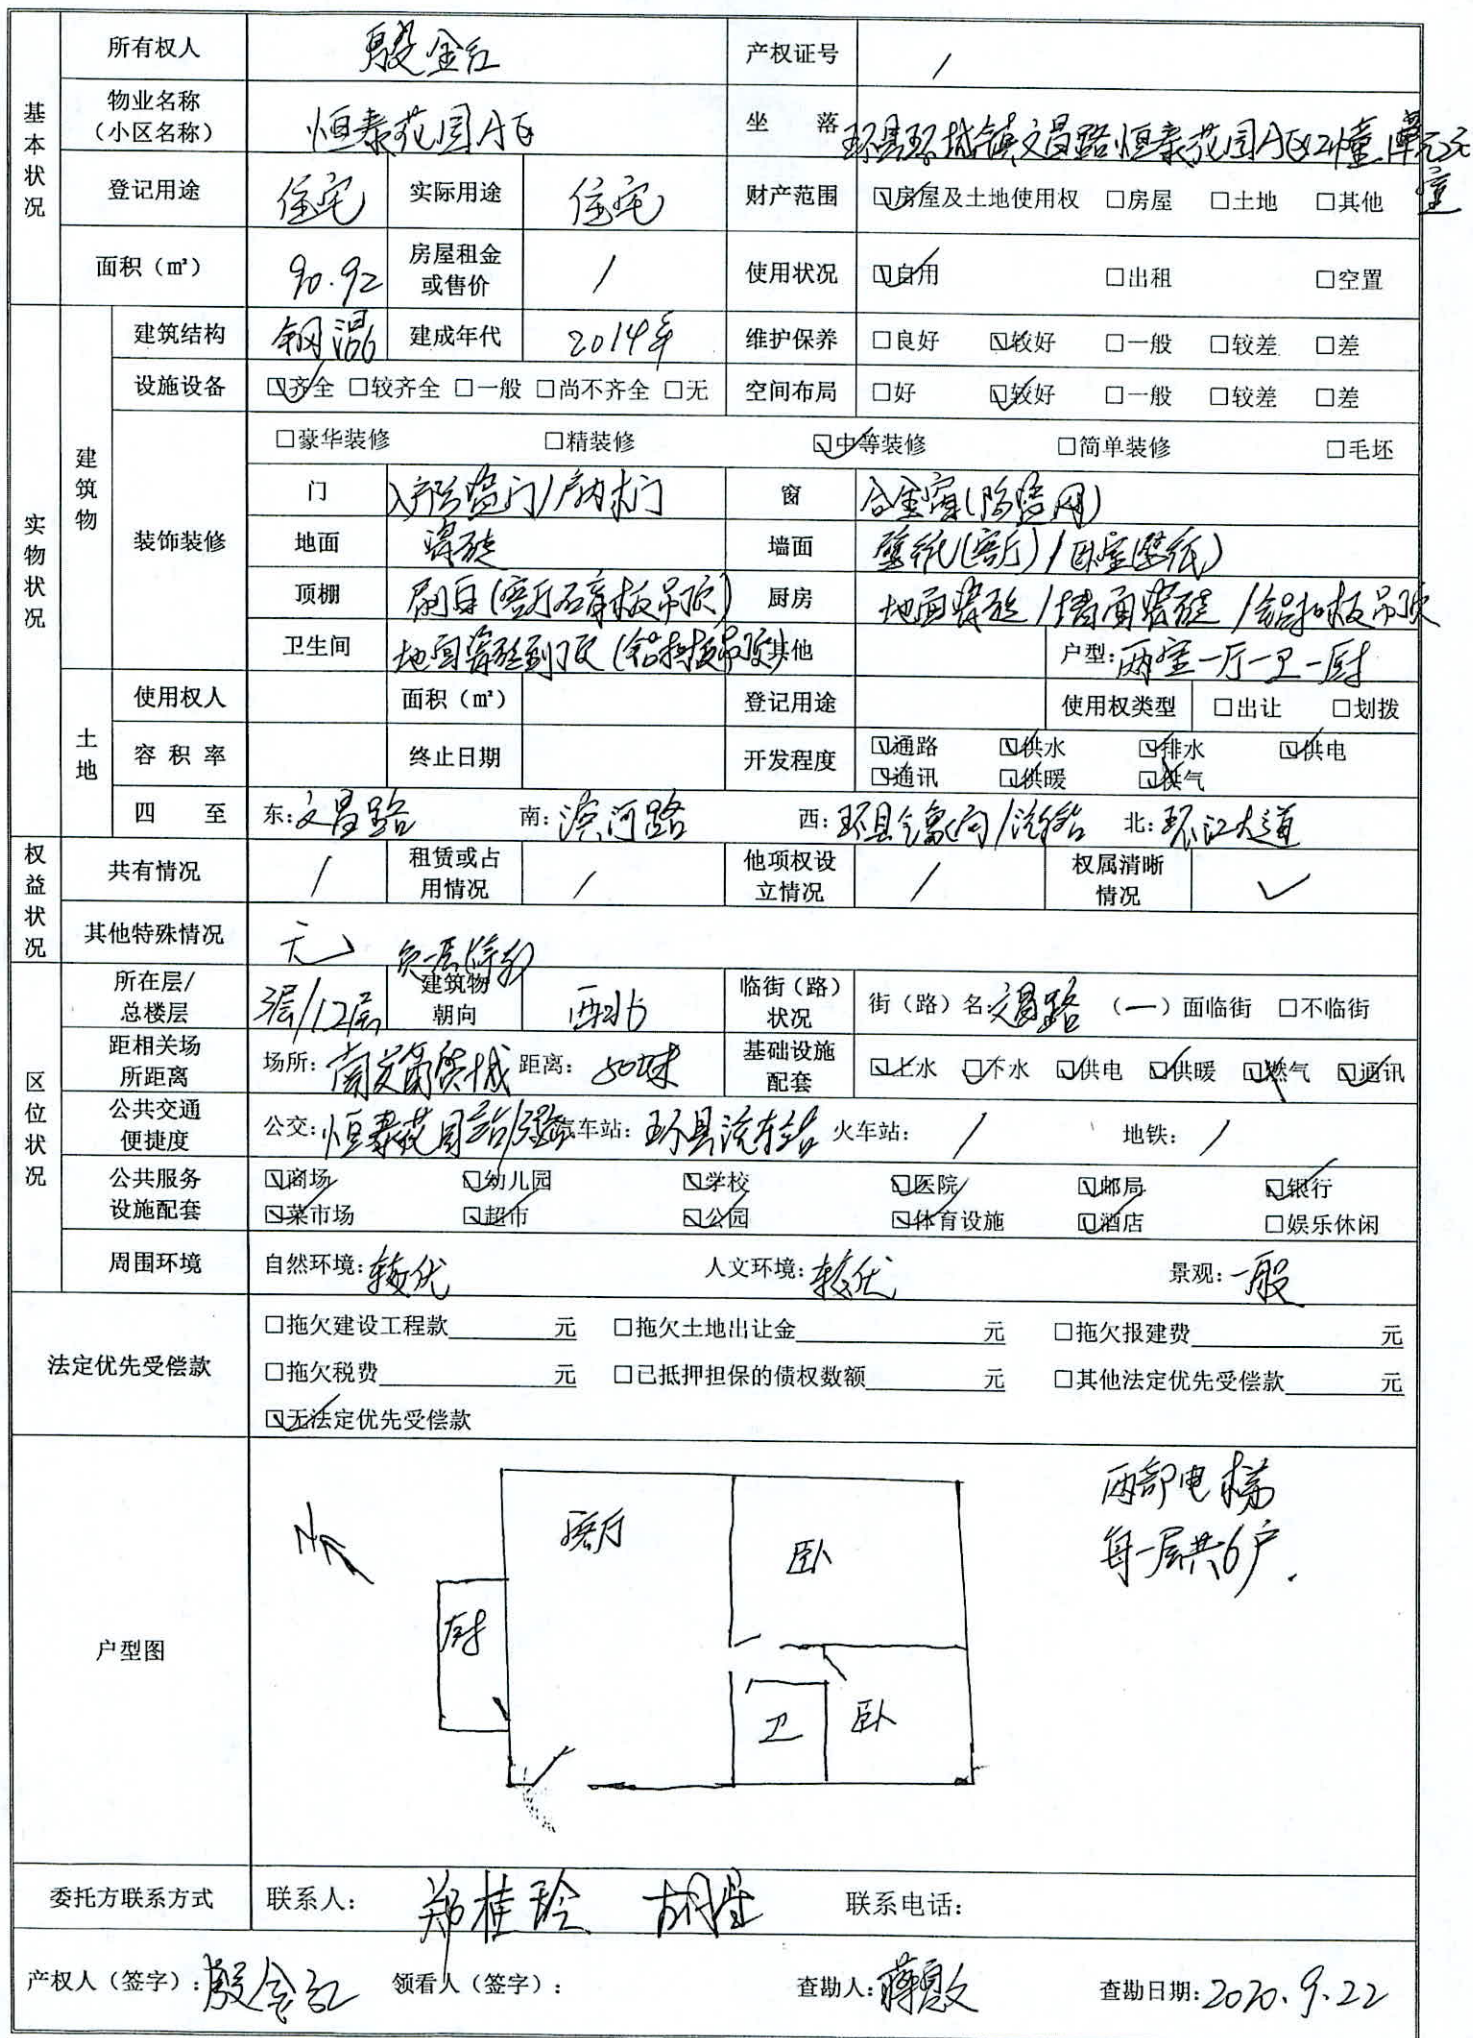 基本状况
所有权人 殷金红 产权证号 /
物业名称（小区名称） 恒泰花园A区 坐 落 环县环城镇文昌路恒泰花园A区2幢
登记用途 住宅 实际用途 住宅 财产范围 ☑房屋及土地使用权 □房屋 □土地 □其他
面积（㎡） 90.92 房屋租金或售价 / 使用状况 ☑自用 □出租 □空置
实物状况
建筑物
建筑结构 钢混 建成年代 2014年 维护保养 □良好 ☑较好 □一般 □较差 □差
设施设备 ☑齐全 □较齐全 □一般 □尚不齐全 □无 空间布局 □好 ☑较好 □一般 □较差 □差
装饰装修 □豪华装修 □精装修 ☑中等装修 □简单装修 □毛坯
门 入户防盗门/房内木门 窗 合金窗(防盗网)
地面 瓷砖 墙面 壁纸(客厅)/卧室(壁纸)
顶棚 刷白(客厅石膏板吊顶) 厨房 地面瓷砖/墙面瓷砖/铝扣板吊顶
卫生间 地面瓷砖到顶(铝扣板吊顶) 其他 户型:两室一厅一卫一厨
土地
使用权人 面积（㎡） 登记用途 使用权类型 □出让 □划拨
容 积 率 终止日期 开发程度 ☑通路 ☑供水 ☑排水 ☑供电
☑通讯 ☑供暖 ☑供气
四 至 东:文昌路 南:滨河路 西:环县 北:环江大道
权益状况
共有情况 / 租赁或占用情况 / 他项权设立情况 / 权属清晰情况 ✓
其他特殊情况 无
负一层
区位状况
所在层/总楼层 3层/12层 建筑物朝向 西北 临街（路）状况 街（路）名:文昌路 （一）面临街 □不临街
距相关场所距离 场所: 距离: 50米 基础设施配套 ☑上水 ☑下水 ☑供电 ☑供暖 ☑燃气 ☑通讯
公共交通便捷度 公交:恒泰花园站 汽车站:环县汽车站 火车站: / 地铁: /
公共服务设施配套 ☑商场 ☑幼儿园 ☑学校 ☑医院 ☑邮局 ☑银行
☑菜市场 ☑超市 ☑公园 ☑体育设施 ☑酒店 □娱乐休闲
周围环境 自然环境:较优 人文环境:较优 景观:一般
法定优先受偿款
□拖欠建设工程款______元 □拖欠土地出让金______元 □拖欠报建费______元
□拖欠税费______元 □已抵押担保的债权数额______元 □其他法定优先受偿款______元
☑无法定优先受偿款
户型图
两部电梯
每一层共6户.
客厅
卧
厨
卫
卧
委托方联系方式 联系人: 郑桂玲 联系电话:
产权人（签字）:殷金红 领看人（签字）: 查勘人: 查勘日期:2020.9.22